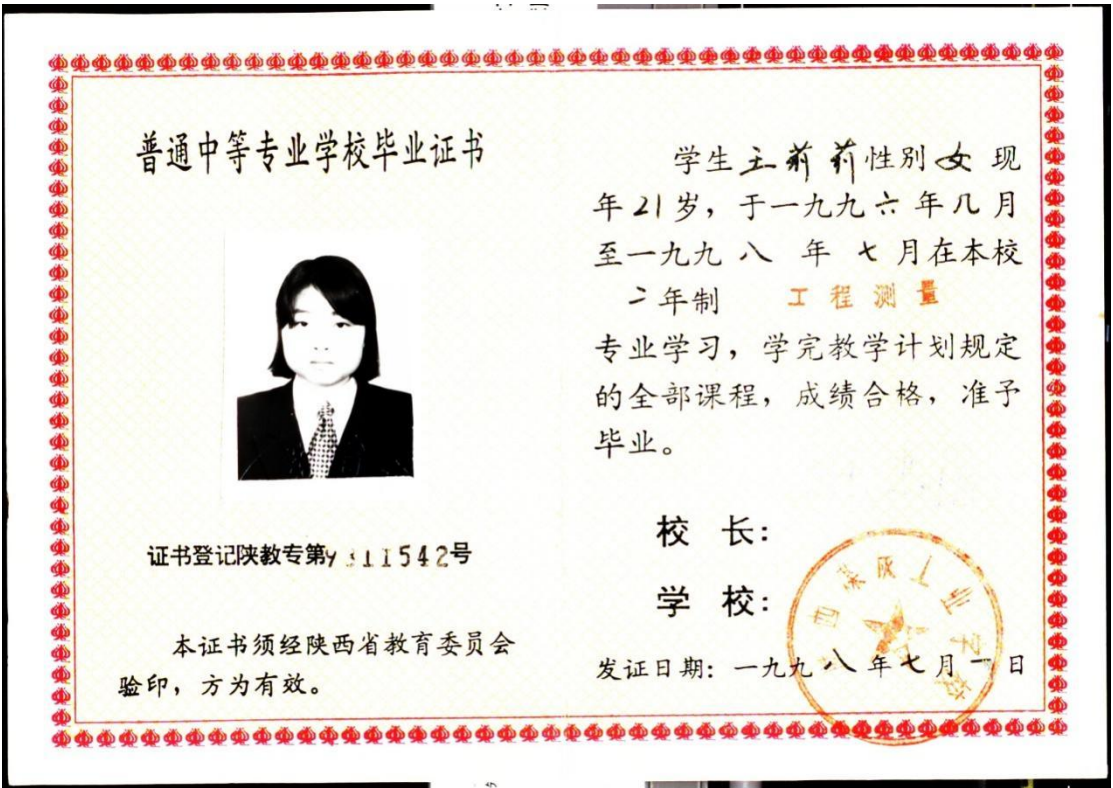 普通中等专业学校毕业证书
证书登记陕教专第9311542号
本证书须经陕西省教育委员会
验印，方为有效。
学生王莉莉性别女 现
年21岁，于一九九六年九月
至一九九八 年 七月在本校
二年制 工程测量
专业学习，学完教学计划规定
的全部课程，成绩合格，准予
毕业。
校 长：
学 校：
发证日期：一九九八年七月一日